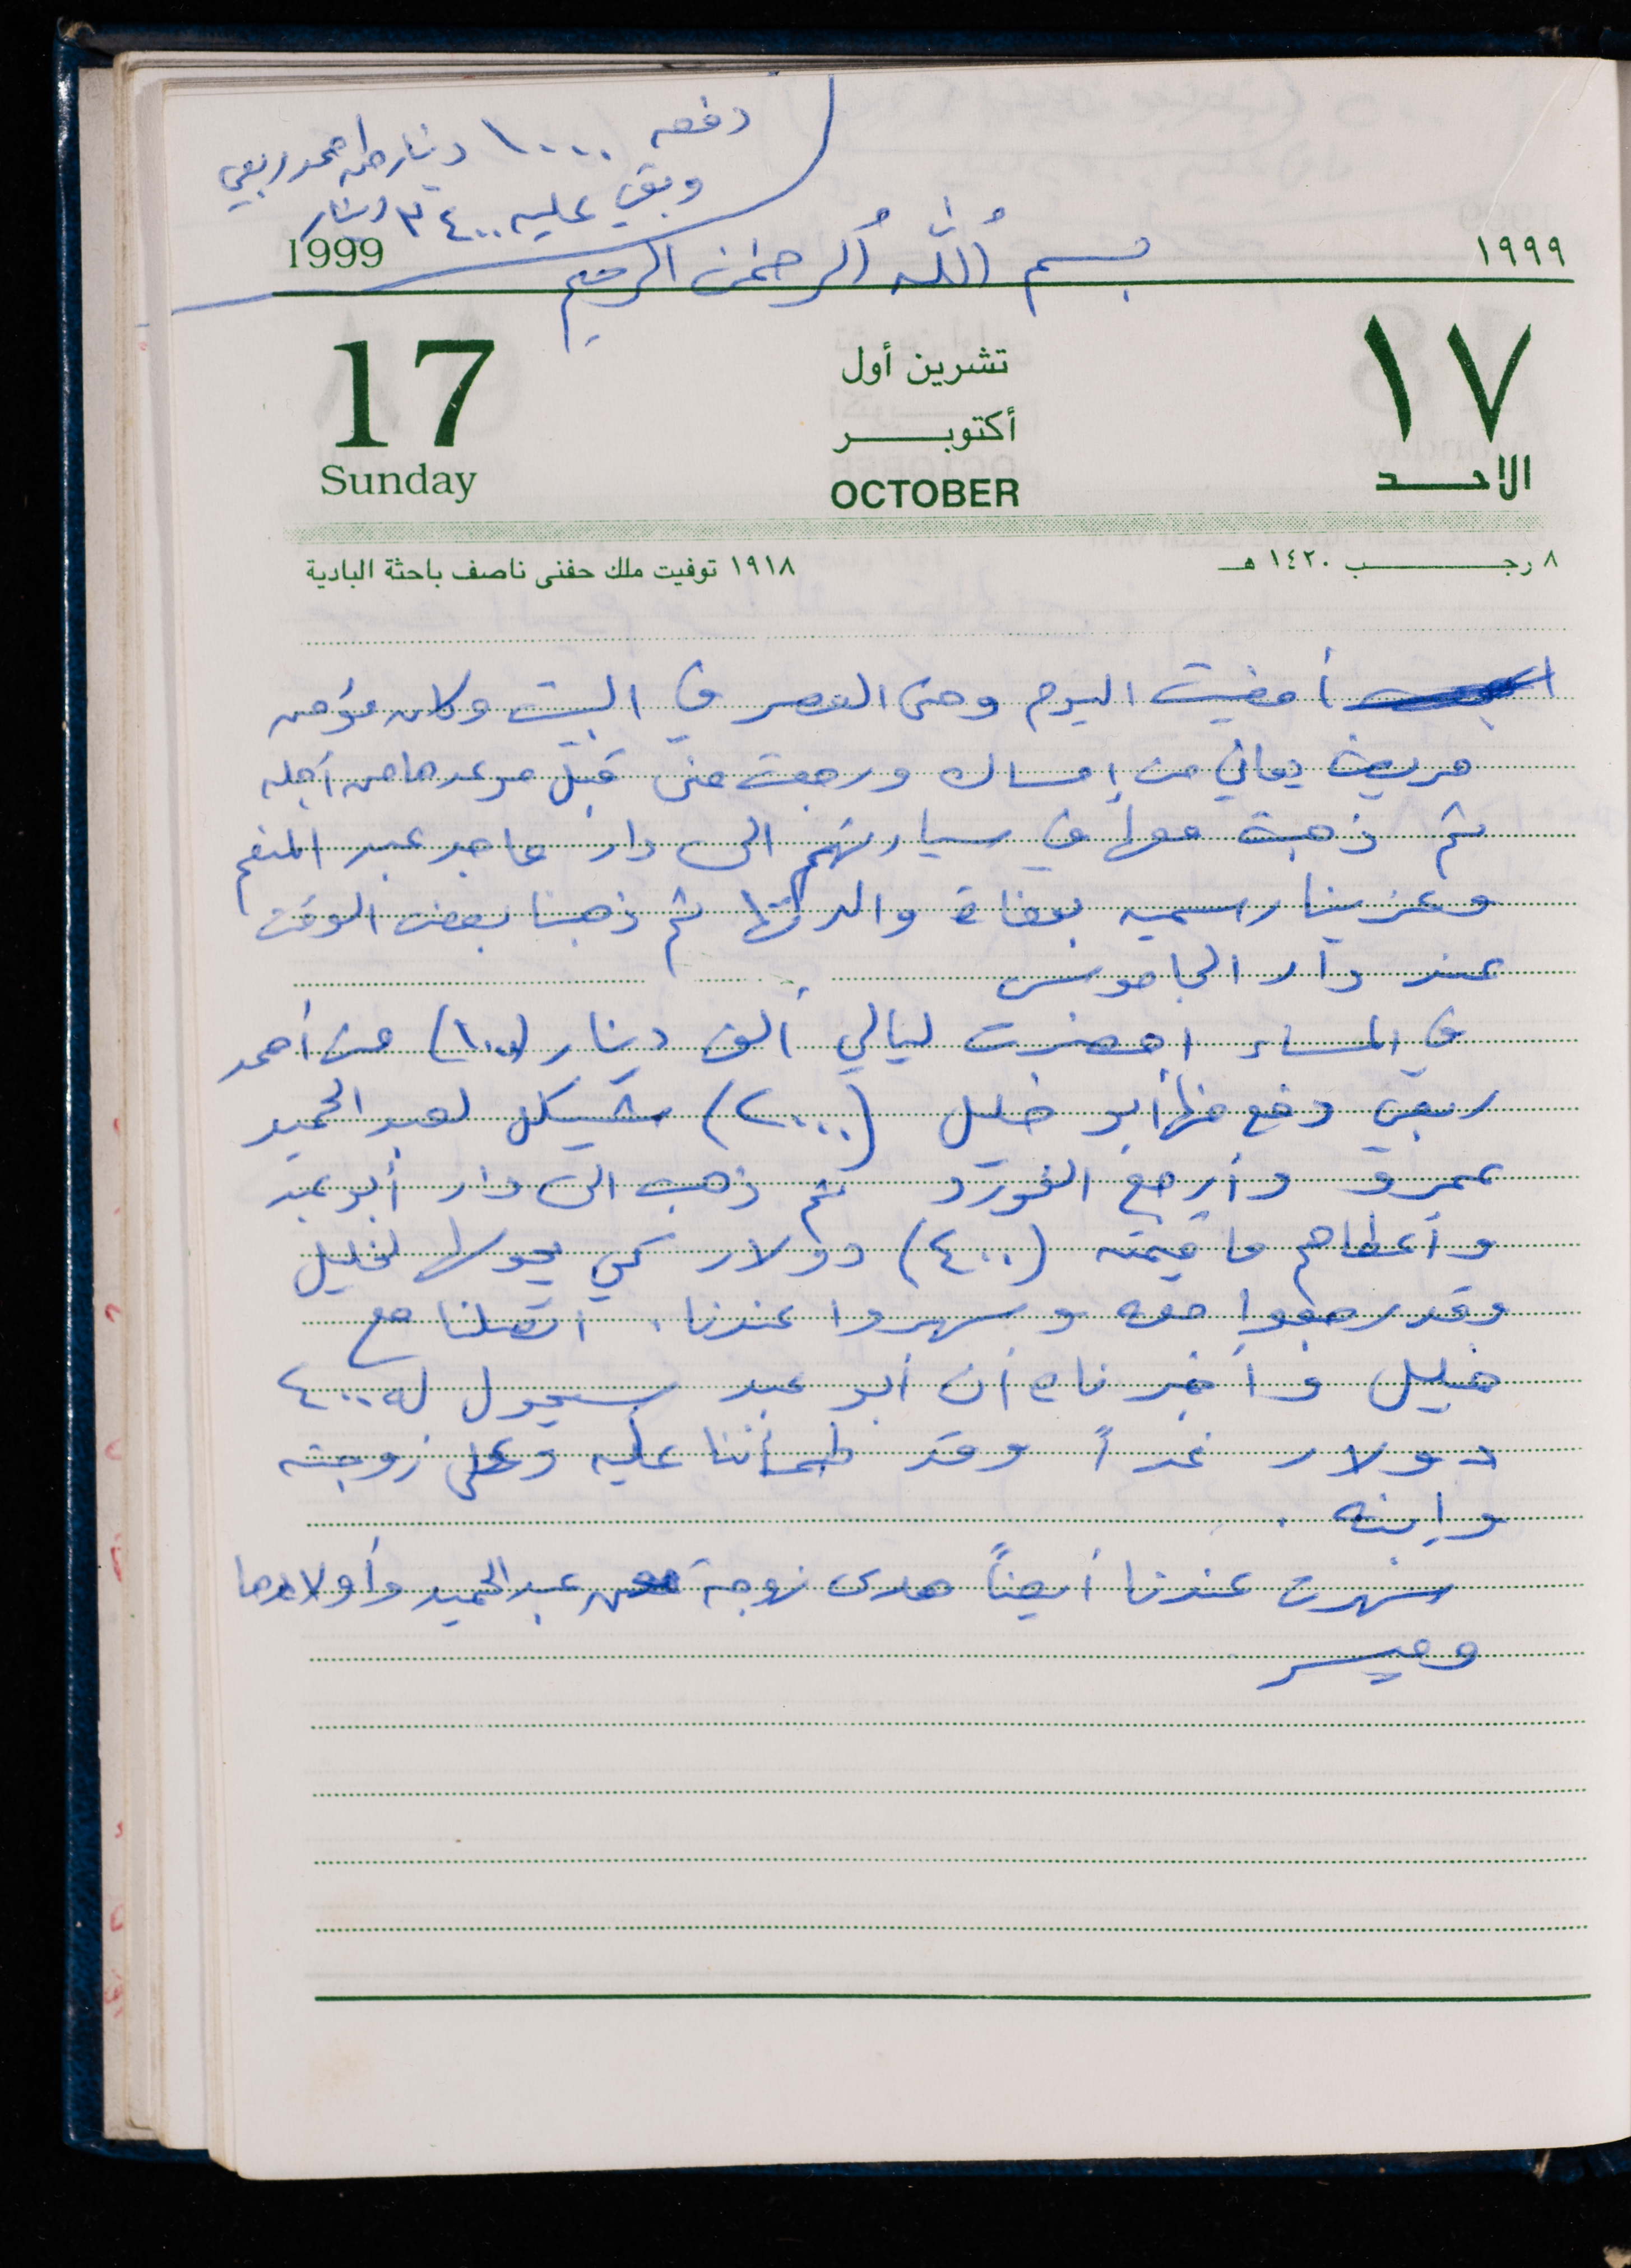 دفعه ١٠٠٠ دينار من احمد ربعي
وبقي عليه ٣٤٠٠ دينار
1999
بسم الله الرحمن الرحيم
١٩٩٩
17
تشرين أول
١٧
أكتوبر
Sunday
OCTOBER
الاحد
٨ رجب ١٤٢٠ هـ
١٩١٨ توفيت ملك حفنى ناصف باحثة البادية
أمضيت اليوم وحتى العصر في البيت وكان مؤمن
مريض يعاني من إمساك ورجعت منى قبل موعدها من أجله
ثم ذهبت معها في سيارتهم الى دار ماجد عبد المنعم
وعزينا رسميه بوفاة والدتها ثم ذهبنا بعض الوقت
عند دار الجاموس
في المساء احضرت ليالي ألف دينار (١٠٠٠) من أحمد
ربعي دفع منها أبو خليل (٢٠٠٠) شيكل لعبد الحميد
عمرو وأرجع الفورد ثم ذهب الى دار أبو عبد
وأعطاهم ما قيمته (٤٠٠) دولار كي يحولها لخليل
وقد رجعوا معه وسهروا عندنا. اتصلنا مع
خليل وأخبرناه أن أبو عبد سيحول له ٤٠٠
دولار غداً وقد طمأننا عليه وعلى زوجته
وابنه.
سهرت عندنا أيضاً هدى زوجة عبد الحميد وأولادها
وميسر